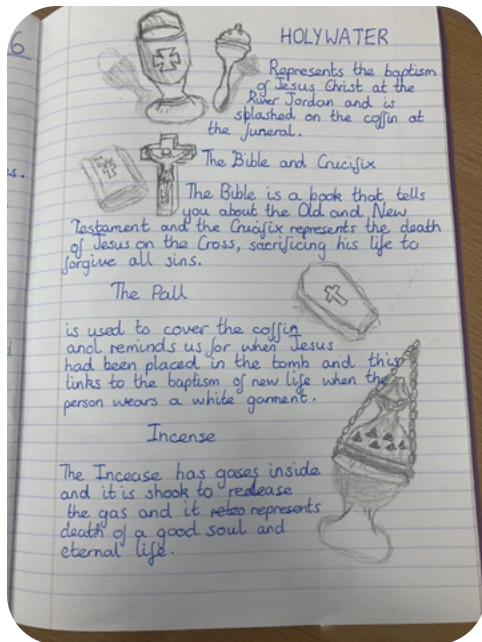 6
HOLYWATER
Represents the baptism
of Jesus Christ at the
River Jordan and is
splashed on the coffin at
the funeral.
s.
The Bible and Crucifix
The Bible is a book that tells
you about the Old and New
Testament and the Crucifix represents the death
of Jesus on the Cross, sacrificing his life to
forgive all sins.
The Pall
is used to cover the coffin
and reminds us for when Jesus
had been placed in the tomb and this
links to the baptism of new life when the
person wears a white garment.
Incense
The Incease has gases inside
and it is shook to redease
the gas and it represents
death of a good soul and
eternal life.